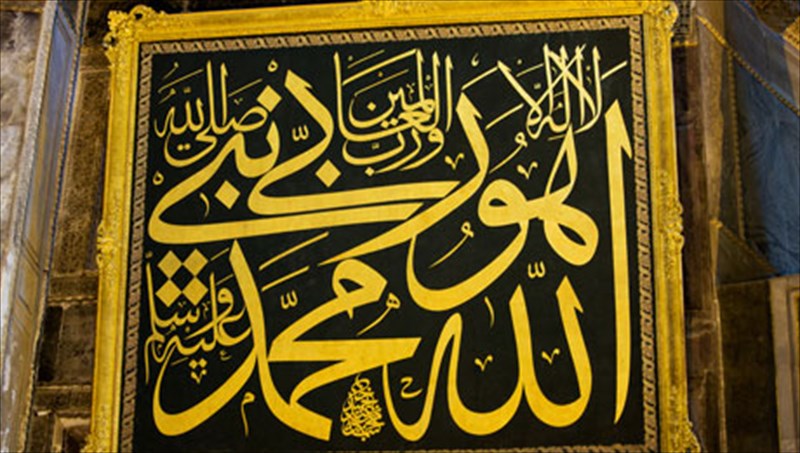 لا اله الا
هو
ورب العالمين
الله ربي
محمد نبي
صلى الله
عليه وسلم